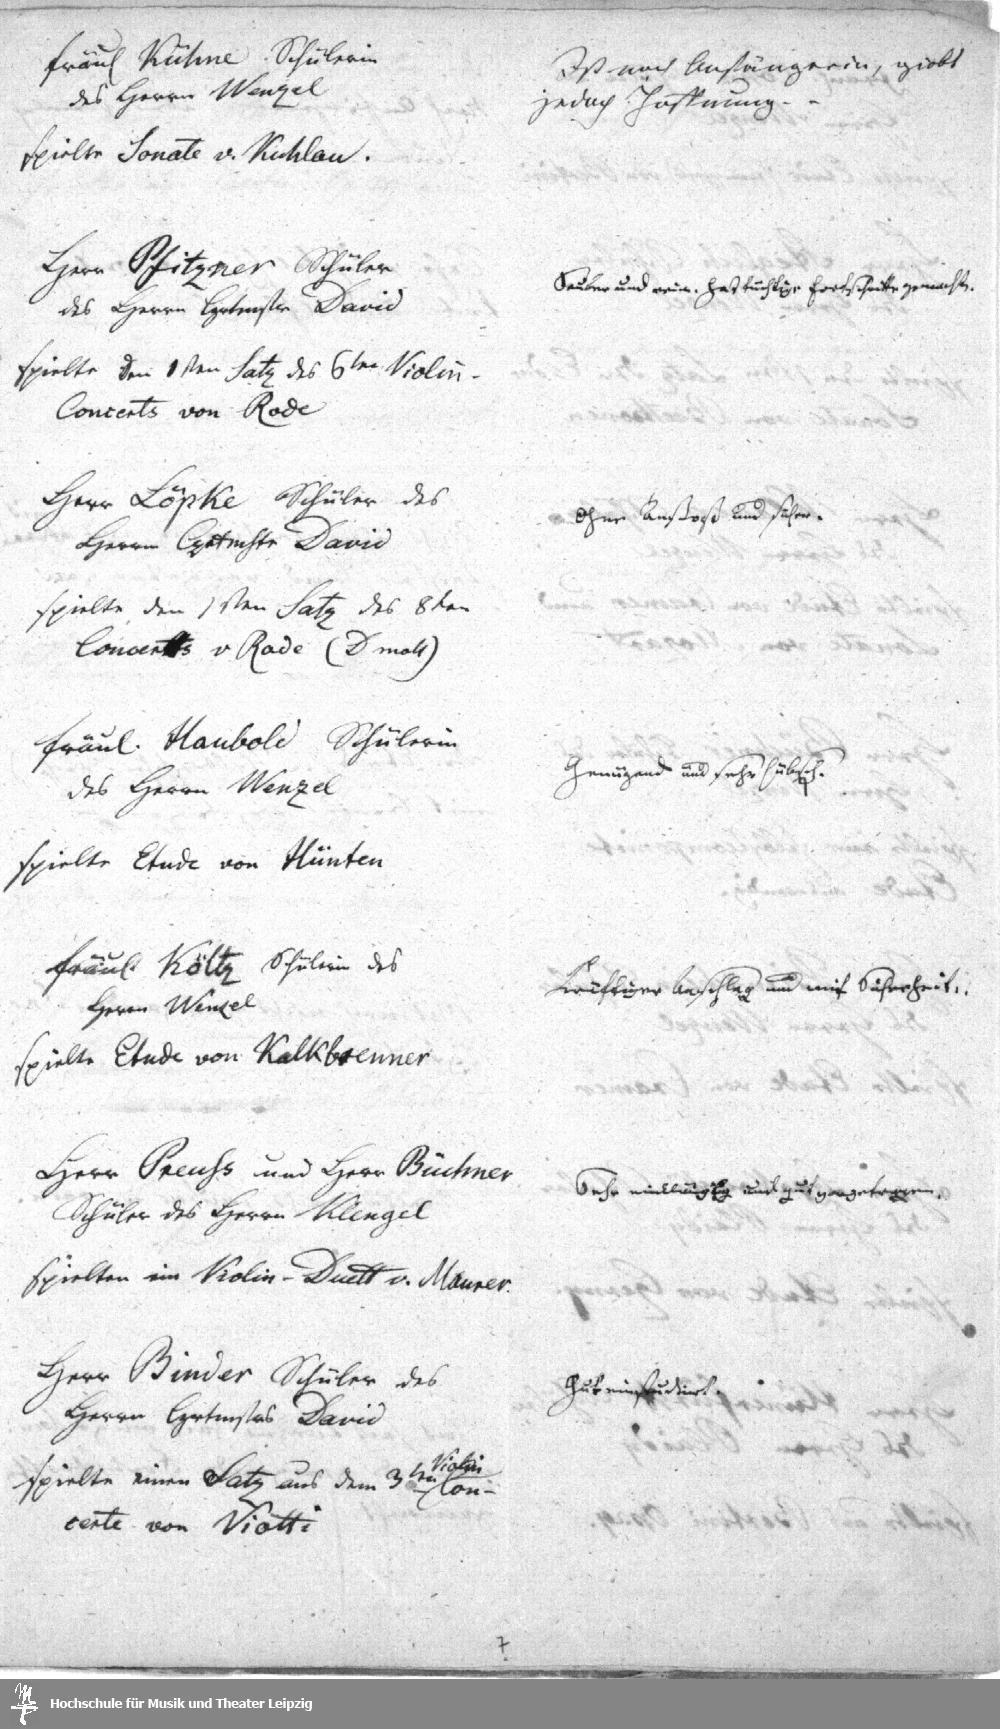 Fräul Kühne Schülerin
des Herrn Wenzel
spielte Sonate v. Kuhlau.
Ist noch Anfängerin, giebt
jedoch Hoffnung.
Herr Pfitzner Schüler
des Herrn Cgrtmstr David
spielte den 1sten Satz des 6ten Violin-
Concerts von Rode
Sauber und rein. Hat tüchtige Fortschritte gemacht.
Herr Löpke Schüler des
Herrn David
spielte den 1sten Satz des 8ten
Concerts v Rode (D moll)
Ohne Anstoß und sicher.
Fräul. Haubold Schülerin
des Herrn Wenzel
spielte Etude von Hünten
Genügend und sehr hübsch.
Fräul. Költz Schülerin des
Herrn Wenzel
spielte Etude von Kalkbrenner
Kräftiger Anschlag und mit Sicherheit.
Herr Preuhs und Herr Büchner
Schüler des Herrn Klengel
spielten ein Violin-Duett v. Maurer.
Sehr und gut vorgetragen.
Herr Binder Schüler des
Herrn Cgrtmstrs David
spielte einen Satz aus dem 3ten Violin
Con-
certe von Viotti
Gut einstudirt.
7
Hochschule für Musik und Theater Leipzig